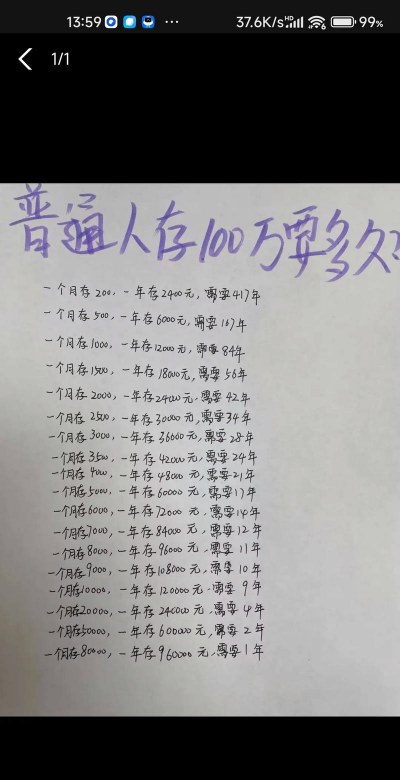 13:59 ... 37.6K/s HD 99%
1/1
普通人存100万要多久?
一个月存200,一年存2400元,需要417年
一个月存500,一年存6000元,需要167年
一个月存1000,一年存12000元,需要84年
一个月存1500,一年存18000元,需要56年
一个月存2000,一年存24000元,需要42年
一个月存2500,一年存30000元,需要34年
一个月存3000,一年存36000元,需要28年
一个月存3500,一年存42000元,需要24年
一个月存4000,一年存48000元,需要21年
一个月存5000,一年存60000元,需要17年
一个月存6000,一年存72000元,需要14年
一个月存7000,一年存84000元,需要12年
一个月存8000,一年存96000元,需要11年
一个月存9000,一年存108000元,需要10年
一个月存10000,一年存120000元,需要9年
一个月存20000,一年存240000元,需要4年
一个月存50000,一年存600000元,需要2年
一个月存80000,一年存960000元,需要1年